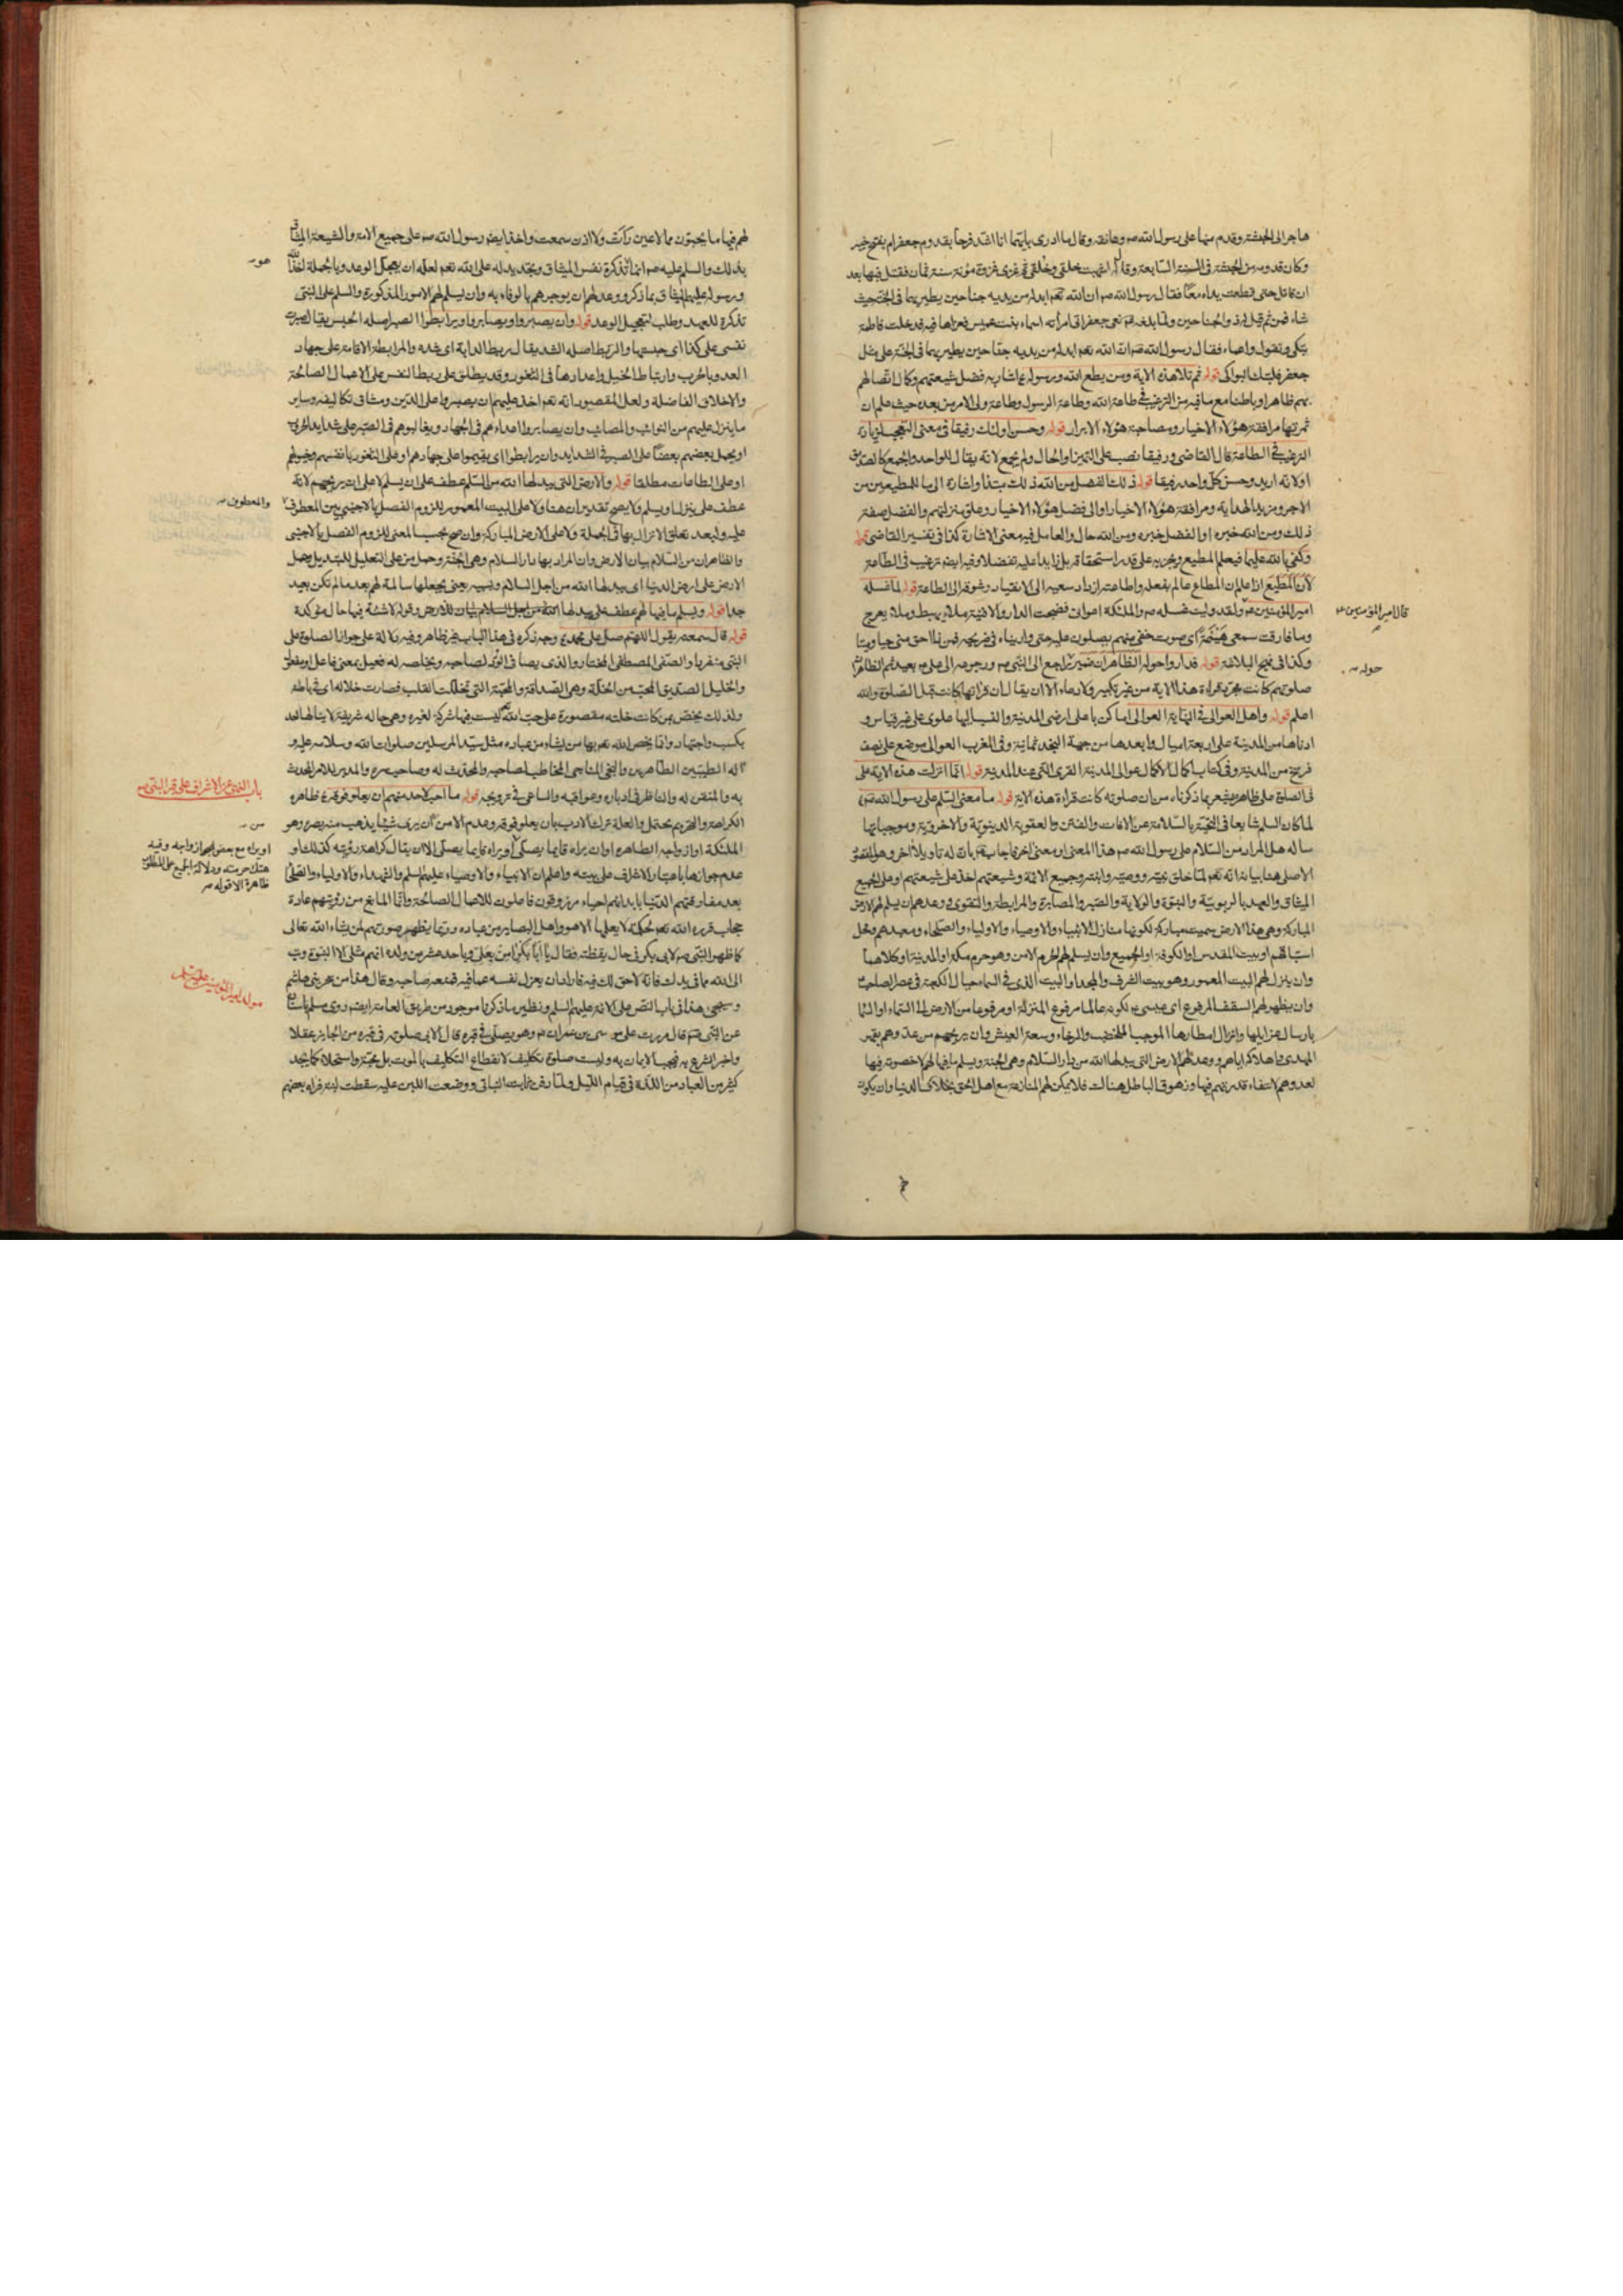 هاجر الى الحبشة وقدم منها على رسول الله صم وعانقه وقال ما ادرى بايهما انا اشد فرحا بقدوم جعفر ام بفتح خيبر
وكان قدومه من الحبشة فى السنة السابعة وقال اشبهت خلقى وخلقى ثم غزى غزوة موتة سنة ثمان فقتل فيها بعد
ان قاتل حتى قطعت يداه معا فقال رسول الله صم ان الله تعم ابدله من يديه جناحين يطير بهما فى الجنة حيث
شاء فمن ثم قيل له ذو الجناحين ولما بلغه صم نعى جعفر اتى امرأته اسماء بنت عميس فعزاها فيه فدخلت فاطمة
تبكى وتقول واعماه فقال رسول الله صم ان الله تعم ابدله من يديه جناحين يطير بهما فى الجنة على مثل
جعفر فلتبك البواكى قوله ثم تلا هذه الاية ومن يطع الله ورسوله اشار به فضل شيعتهم وكمال اتصالهم
بهم ظاهرا وباطنا مع ما فيه من الترغيب فى طاعة الله وطاعة الرسول وطاعة ولى الامر من بعده حيث علم ان
ثمرتها مرافقة هؤلاء الاخيار ومصاحبة هؤلاء الابرار قوله وحسن اولئك رفيقا فى معنى التعجب لزيادة
الترغيب فى الطاعة قال القاضى ورفيقا نصب على التميز او الحال ولم يجمع لانه يقال للواحد والجمع كالصديق
او لانه اريد وحسن كل واحد رفيقا قوله ذلك الفضل من الله ذلك مبتدأ واشارة الى ما للمطيعين من
الاجر ومزيد الهداية ومرافقة هؤلاء الاخيار او الى فضل هؤلاء الاخيار وعلو منزلتهم والفضل صفة
ذلك ومن الله خبره او الفضل خبره ومن الله حال والعامل فيه معنى الاشارة كذا فى تفسير القاضى قوله
وكفى بالله عليما فيعلم المطيع ويجزيه على قدر استحقاقه بل زايدا عليه تفضلا وفيه ايضا ترغيب فى الطاعة
لان المطيع اذا علم ان المطاع عالم بفعله واطاعته ازداد سعيه الى الانقياد وشوقه الى الطاعة قوله لما غسله
امير المؤمنين عم ولقد وليت غسله صم والملئكة اعوانى فضجت الدار والافنية ملاء يهبط وملاء يعرج
وما فارقت سمعى هينمة اى صوت خفى منهم يصلون عليه حتى واريناه فى ضريحه فمن ذا احق منى حيا وميتا
وكذا فى نهج البلاغة قوله فداروا حوله الظاهر ان ضمير راجع الى النبى صم ورجوعه الى على عم بعيد ثم الظاهر ان
صلوتهم كانت مجرد قراءة هذه الاية من غير تكبير ولا دعاء الا ان يقال ان قراتها كانت قبل الصلوة والله
اعلم قوله واهل العوالى فى النهاية العوالى اماكن باعلى اراضى المدينة والنسبة اليها علوى على غير قياس و
ادناها من المدينة على اربعة اميال وابعدها من جهة النجد ثمانية وفى المغرب العوالى موضع على نصف
فرسخ من المدينة وفى كتاب اكمال الاكمال عوالى المدينة القرى التى عند المدينة قوله انما انزلت هذه الاية على
فى الصلوة على ظاهره يشعر بما ذكرناه من ان صلوته كانت قراءة هذه الاية قوله ما معنى السلم على رسول الله صم
لما كان السلم شايعا فى التحية بالسلامة عن الافات والفتن والعقوبة الدينوية والاخروية وموجباتها
ساله هل المراد من السلام على رسول الله صم هذا المعنى او معنى اخر فاجاب عم بان له تاويلا اخر وهو المقصود
الاصلى هنا بيانه انه تعم لما خلق نبيه ووصيه وابنته وجميع الائمة وشيعتهم اخذ على شيعتهم او على الجميع
الميثاق والعهد بالربوبية والنبوة والولاية والصبر والمصابرة والمرابطة والتقوى ووعدهم ان يسلم لهم الارض
المباركة وهى هذه الارض سميت مباركة لكونها منازل الانبياء والاوصياء والاولياء والصلحاء ومعبدهم ومحل
استيلائهم او بيت المقدس او الكوفة او الجميع وان يسلم لهم الحرم الامن وهو حرم مكة او المدينة او كلاهما
وان ينزل لهم البيت المعمور وهو بيت الشرف والمجد او البيت الذى فى السماء حيال الكعبة فى عصر الصاحب
وان يظهر لهم السقف المرفوع اى عيسى عم لكونه عالما مرفوع المنزلة او مرفوعا من الارض الى السماء او السماء
بارسال عزاليها وانزال امطارها الموجب للخصب والرخاء وسعة العيش وان يريحهم من عدوهم بقهر
المهدى واهلاكه اياهم ووعدهم الارض التى يبدلها الله من دار السلام وهى الجنة ويسلم ما فيها لهم لا خصومة فيها
لعدوهم لانتفاء قدرتهم فيها وزهوق الباطل هنالك فلا يمكن لهم المنازعة مع اهل الحق بخلاف الدنيا وان يكون
قال امير المؤمنين عم
حوله صم
لهم فيها ما يحبون مما لا عين رأت ولا اذن سمعت واخذ ايضا رسول الله صم على جميع الامة والشيعة الميثاق
بذلك والسلم عليه صم انما تذكرة نفس الميثاق وتجديد له على الله تعم لعله ان يعجل الوعد وبالجملة اخذ الله
ورسوله عليهم الميثاق بما ذكر ووعد لهم ان يوجرهم بالوفاء به وان يسلم لهم الامور المذكورة والسلم على النبى
تذكرة للعهد وطلب لتعجيل الوعد قوله وان يصبروا ويصابروا ويرابطوا الصبر اصله الحبس يقال صبرت
نفسى على كذا اى حبستها والربط اصله الشد يقال ربط الدابة اى شده والمرابطة الاقامة على جهاد
العدو بالحرب وارتباط الخيل واعدادها فى الثغور وقد يطلق على ربط النفس على الاعمال الصالحة
والاخلاق الفاضلة ولعل المقصود انه تعم اخذ عليهم ان يصبروا على الدين ومشاق تكاليفه وساير
ما ينزل عليهم من النوائب والمصائب وان يصابروا اعداءهم فى الجهاد ويغالبوهم فى الصبر على شدايد الحرب
او يحمل بعضهم بعضا على الصبر فى الشدايد وان يرابطوا اى يقيموا على جهادهم او على الثغور بانفسهم وخيولهم
او على الطاعات مطلقا قوله والارض التى يبدلها الله من السلم عطف على ان يسلم لا على ان يريحهم لانه
عطف على ينزل او يسلم ولا يصح تقدير ان هنا ولا على البيت المعمور للزوم الفصل بالاجنبى بين المعطوف
عليه ولبعد تعلق الانزال بها فى الجملة ولا على الارض المباركة وان صح بحسب المعنى للزوم الفصل بالاجنبى
والظاهر ان من السلام بيان للارض وان المراد بها دار السلام وهى الجنة وحمل من على التعليل للتبديل وحمل
الارض على ارض الدنيا اى يبدلها الله من اجل السلام وبسببه يعنى يجعلها سالمة لهم بعد ما لم تكن بعيد
جدا قوله ويسلم ما فيها لهم عطف على يبدلها وقوله لا شية فيها حال مؤكدة
قوله قال سمعته يقول اللهم صل على محمد وجه ذكره فى هذا الباب غير ظاهر وفيه دلالة على جواز الصلوة على
النبى منفردا والصفى المصطفى المختار والذى يصافى الود لصاحبه ويخلصه له فعيل بمعنى فاعل او مفعول
والخليل الصديق المحب من الخلة وهى الصداقة والمحبة التى تخللت القلب فصارت خلاله اى فى باطنه
ولذلك يختص بمن كانت خلته مقصورة على حب الله ليست فيها شركة لغيره وهى حالة شريفة لا ينالها احد
بكسب واجتهاد وانما يخص الله تعم بها من يشاء من عباده مثل سيد المرسلين صلوات الله وسلامه عليه و
اله الطيبين الطاهرين والنجى المناجى المخاطب لصاحبه والمحدث له وصاحب سره والمدبر للامر المحدث
به والمتقن له والناظر فى ادباره وعواقبه والساعى فى ترويجه قوله ما احب لاحد منهم ان يعلو فوقه ظاهره
الكراهة والتحريم يحتمل والعلة ترك الادب بان يعلو فوقه وعدم الامن ان يرى شيئا يذهب منه بصره وهو
الملئكة او ازواجه الطاهرة او ان يراه قايما يصلى او يراه قايما يصلى الا ان يقال كراهة رؤيته كذلك او
عدم جوازها باعتبار الاشراف على بيته واعلم ان الانبياء والاوصياء عليهم السلم والشهداء والاولياء والصلحاء
بعد مفارقتهم الدنيا بابدانهم احياء مرزوقون فاعلون للاعمال الصالحة وانما المانع من رؤيتهم عادة
حجاب قدره الله تعم لحكمة لا يعلمها الا هو واهل البصاير من عباده وربما يظهر صورتهم لمن يشاء الله تعالى
كما ظهر النبى صم لابى بكر فى حال يقظته فقال يا ابا بكر امن بعلى وباحد عشر من ولده انهم مثلى الا النبوة وتب
الى الله مما فى يدك فانه لا حق لك فيه فاراد ان يعزل نفسه عما فيه فمنعه صاحبه وقال هذا من سحر بنى هاشم
وسيجى هذا فى باب النص على الائمة عليهم السلم ونظير ما ذكرنا موجود من طريق العامة ايضا روى مسلم باسناده
عن النبى صم قال مررت على موسى بن عمران عم وهو يصلى فى قبره قال الابى صلوته فى قبره من الجايز عقلا
واخبر الشرع به فيجب الايمان به وليست صلوة تكليف لانقطاع التكليف بالموت بل محبة واستحلاء كما يجد
كثير من العباد من اللذة فى قيام الليل ولما دفن ثابت البنانى ووضعت اللبن عليه سقطت لبنة فراه بعضهم
هو
والمعطوف
باب النهى عن الاشراف على قبر النبى صم
من
او يراه مع بعض ازواجه وفيه
هتك حرمته ودلالة الجميع على المطلوب
ظاهرة الا قوله
مولد امير المؤمنين عليه السلم